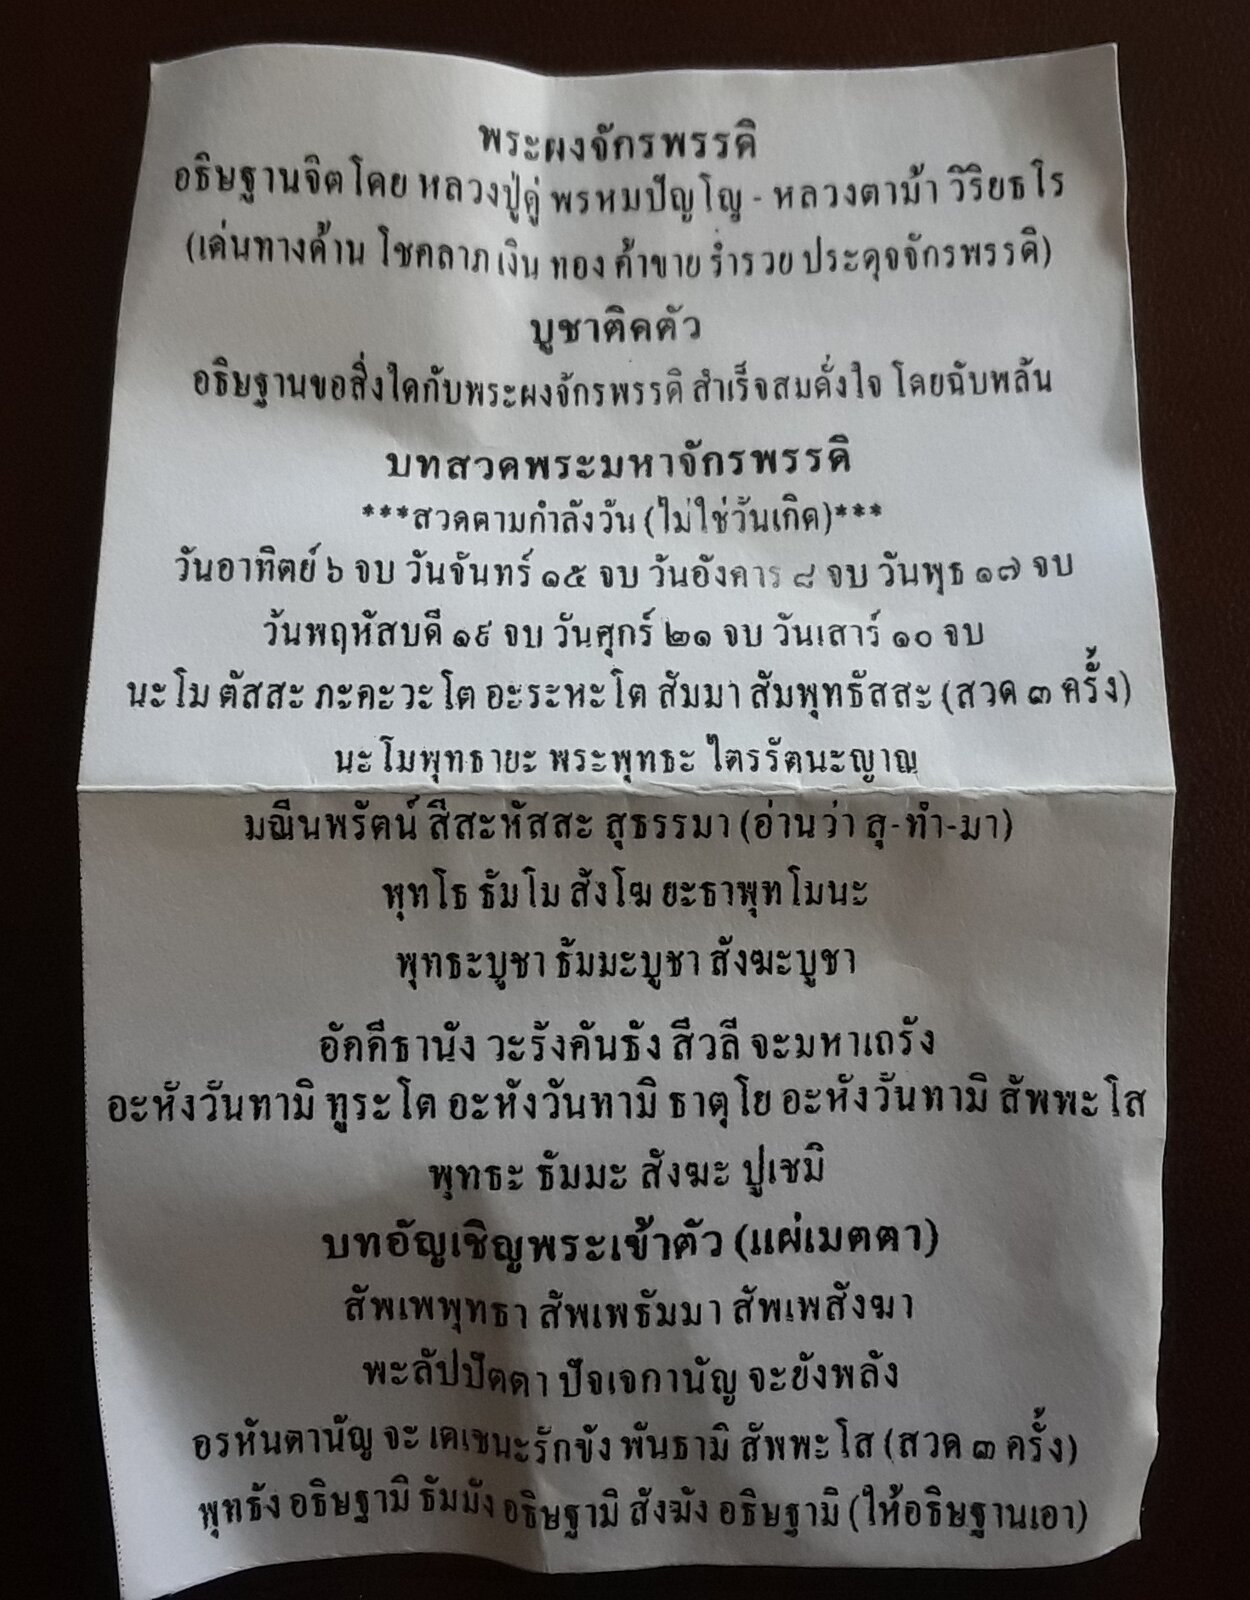 พระผงจักรพรรดิ
อธิษฐานจิตโดย หลวงปู่ดู่ พรหมปัญโญ - หลวงตาม้า วิริยธโร
(เด่นทางด้าน โชคลาภ เงิน ทอง ค้าขาย ร่ำรวย ประดุจจักรพรรดิ)
บูชาติดตัว
อธิษฐานขอสิ่งใดกับพระผงจักรพรรดิ สำเร็จสมดั่งใจ โดยฉับพลัน
บทสวดพระมหาจักรพรรดิ
***สวดตามกำลังวัน (ไม่ใช่วันเกิด)***
วันอาทิตย์ ๖ จบ วันจันทร์ ๑๕ จบ วันอังคาร ๘ จบ วันพุธ ๑๗ จบ
วันพฤหัสบดี ๑๙ จบ วันศุกร์ ๒๑ จบ วันเสาร์ ๑๐ จบ
นะโม ตัสสะ ภะคะวะโต อะระหะโต สัมมา สัมพุทธัสสะ (สวด ๓ ครั้ง)
นะโมพุทธายะ พระพุทธะ ไตรรัตนะญาณ
มณีนพรัตน์ สีสะหัสสะ สุธรรมา (อ่านว่า สุ-ทำ-มา)
พุทโธ ธัมโม สังโฆ ยะธาพุทโมนะ
พุทธะบูชา ธัมมะบูชา สังฆะบูชา
อัคคีธานัง วะรังคันธัง สีวลี จะมหาเถรัง
อะหังวันทามิ ทูระโต อะหังวันทามิ ธาตุโย อะหังวันทามิ สัพพะโส
พุทธะ ธัมมะ สังฆะ ปูเชมิ
บทอัญเชิญพระเข้าตัว (แผ่เมตตา)
สัพเพพุทธา สัพเพธัมมา สัพเพสังฆา
พะลัปปัตตา ปัจเจกานัญ จะยังพลัง
อรหันตานัญ จะ เตเชนะรักขัง พันธามิ สัพพะโส (สวด ๓ ครั้ง)
พุทธัง อธิษฐามิ ธัมมัง อธิษฐามิ สังฆัง อธิษฐามิ (ให้อธิษฐานเอา)